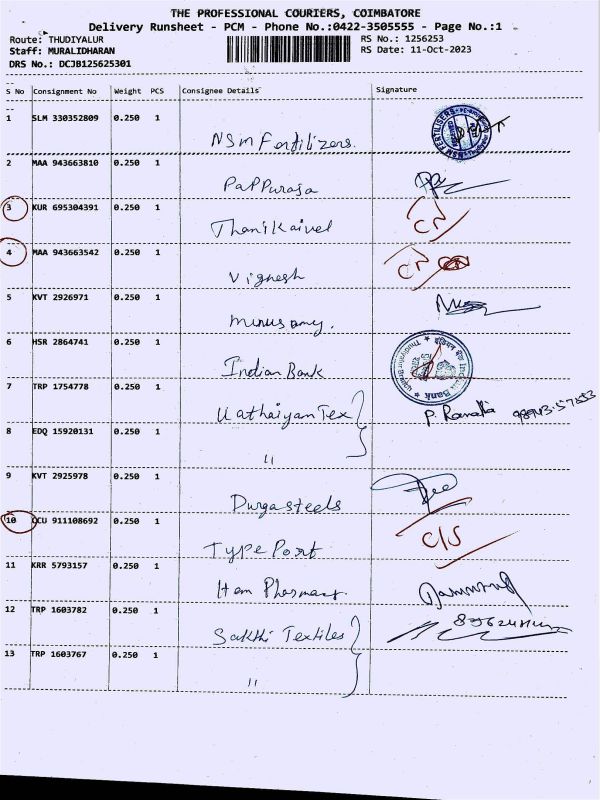 THE PROFESSIONAL COURIERS, COIMBATORE
Delivery Runsheet - PCM - Phone No.:0422-3505555 - Page No.:1
Route: THUDIYALUR
RS No.: 1256253
Staff: MURALIDHARAN
RS Date: 11-Oct-2023
DRS No.: DCJB125625301
S No Consignment No Weight PCS Consignee Details Signature
1 SLM 330352809 0.250 1
NSM Fertilizers.
2 MAA 943663810 0.250 1
Pappuraja
3 KUR 695304391 0.250 1
Thanikaivel
4 MAA 943663542 0.250 1
Vignesh
5 KVT 2926971 0.250 1
6 HSR 2864741 0.250 1
Indian Bank
7 TRP 1754778 0.250 1
Kathaiyan Tex
P.
8 EDQ 15920131 0.250 1
"
9 KVT 2925978 0.250 1
Durga steels
10 911108692 0.250 1
C/S
Type Port
11 KRR 5793157 0.250 1
12 TRP 1603782 0.250 1
Sakthi Textiles
13 TRP 1603767 0.250 1
"